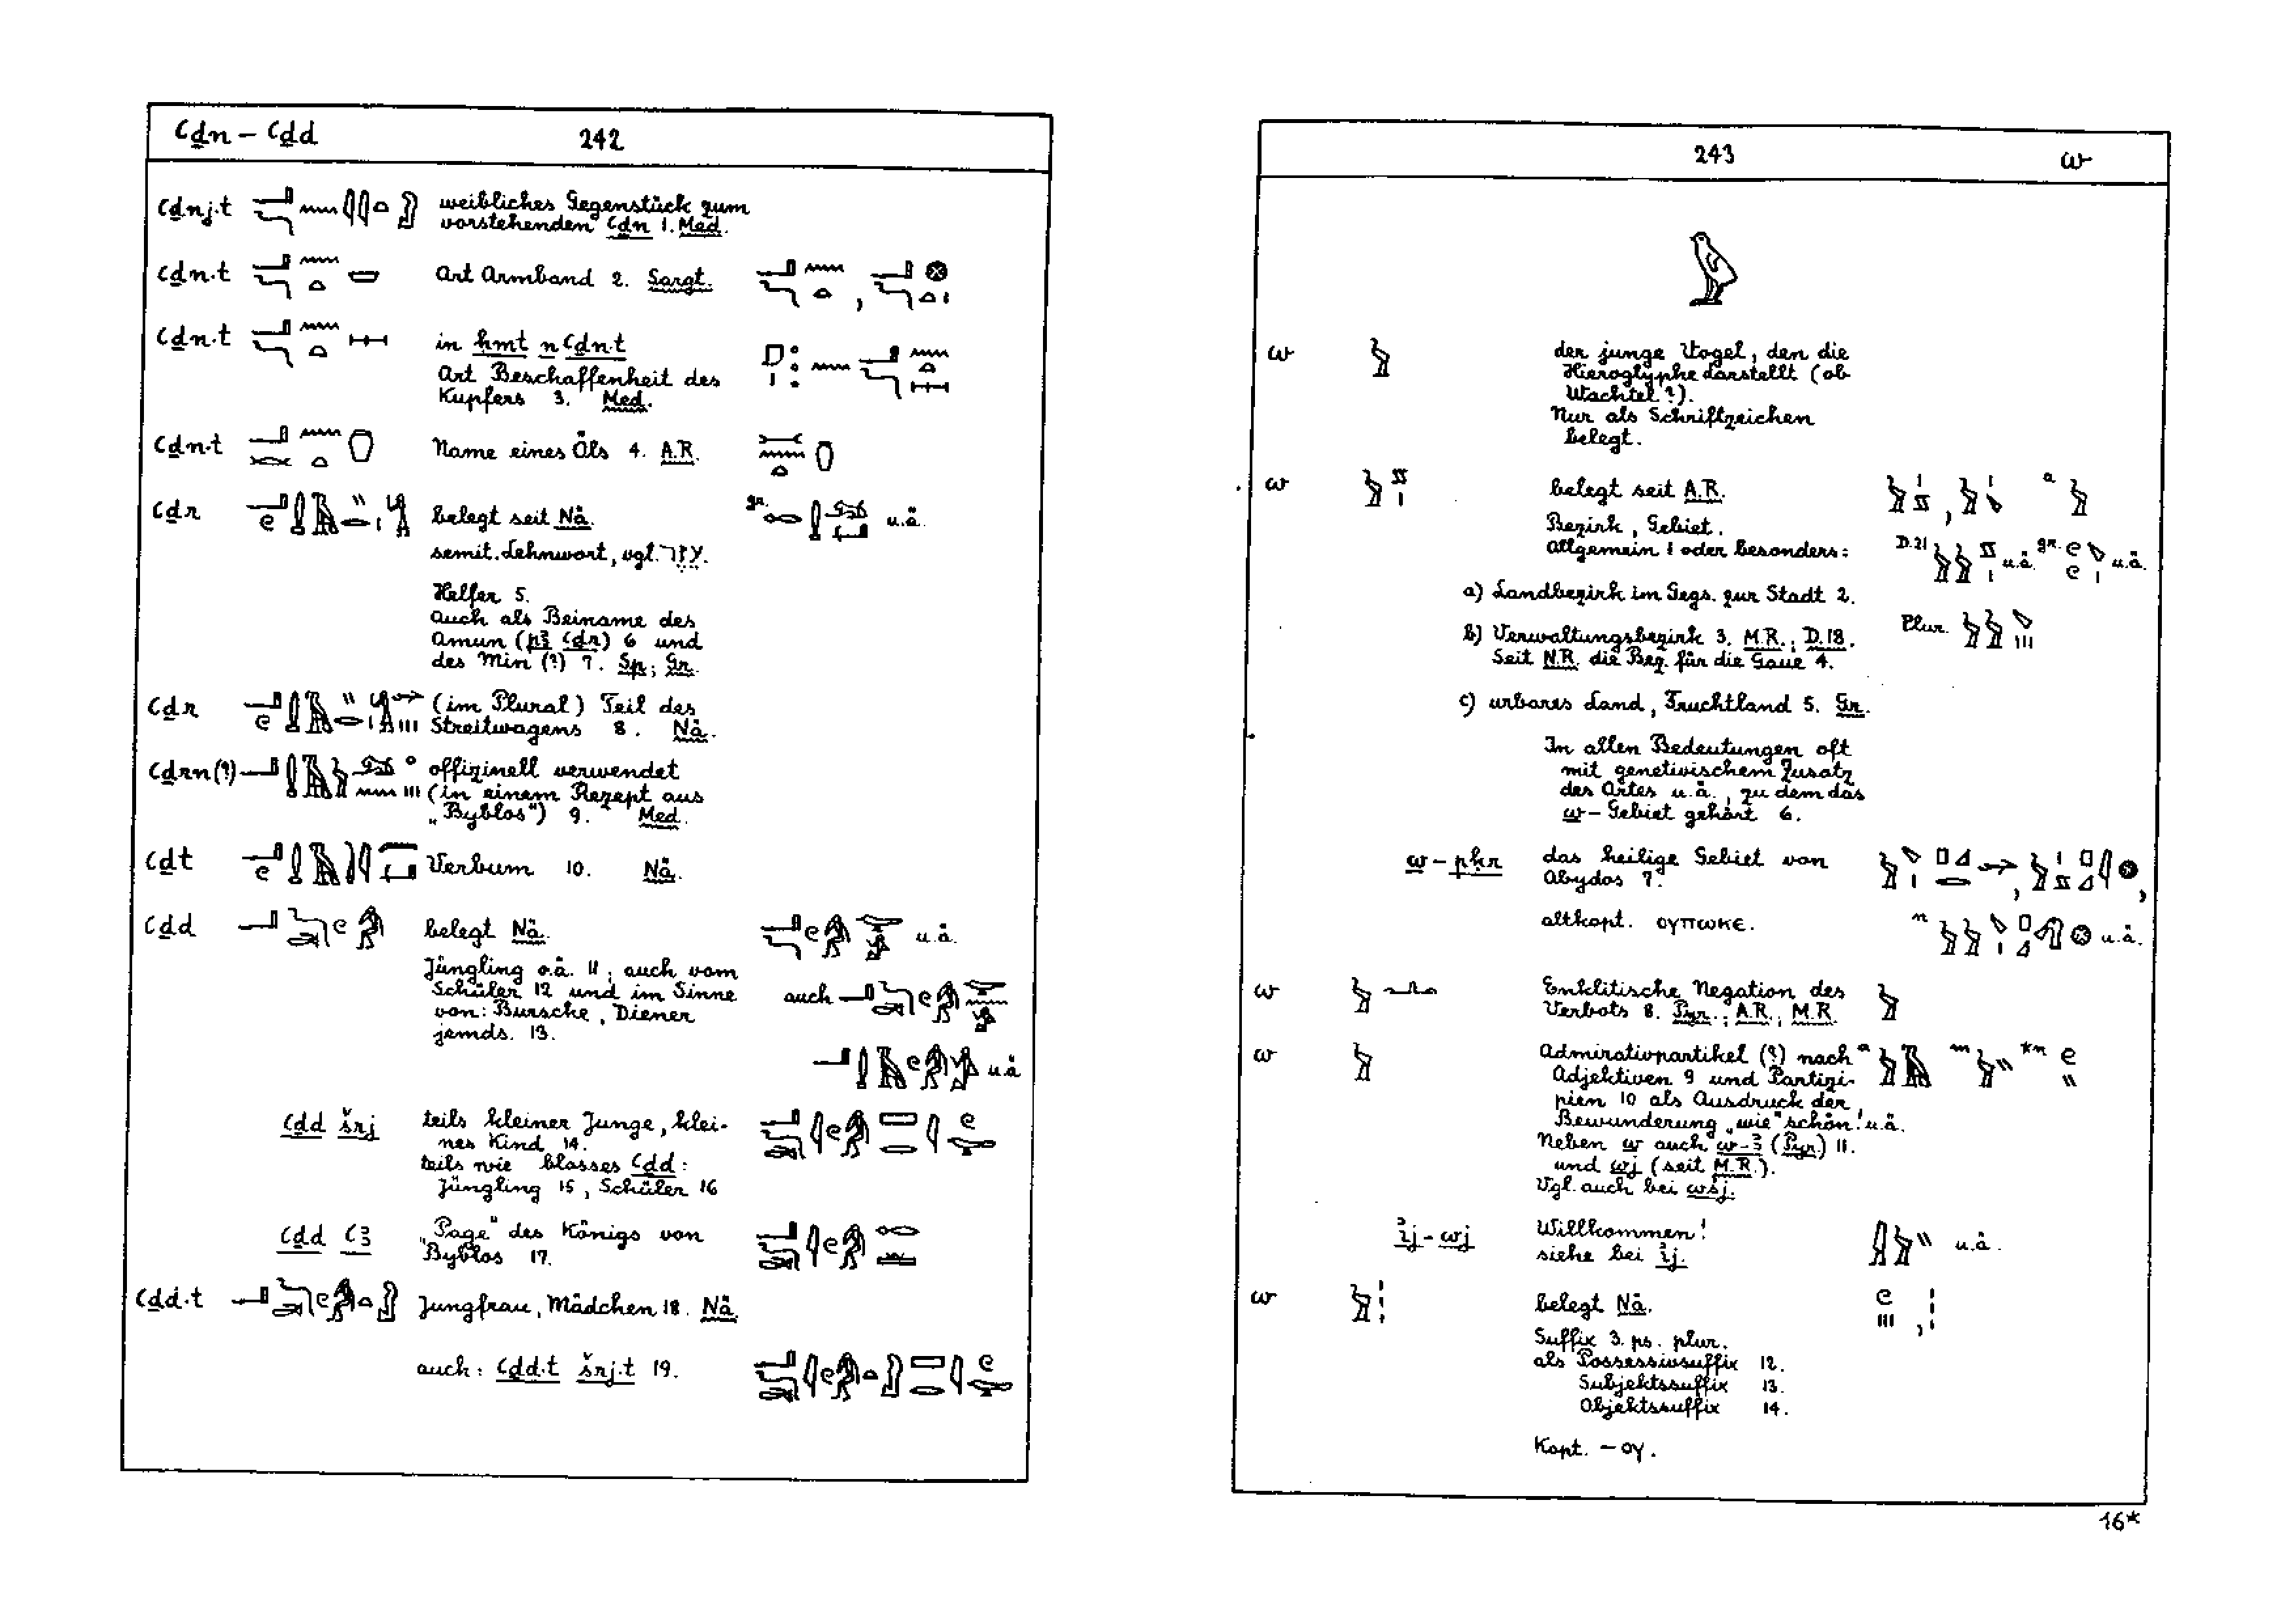 ꜥḏn – ꜥḏd 242
ꜥḏnj.t weibliches Gegenstück zum
vorstehenden ꜥḏn 1. Med.
ꜥḏn.t Art Armband 2. Sargt.
ꜥḏn.t in ḥmt n ꜥḏn.t
Art Beschaffenheit des
Kupfers 3. Med.
ꜥḏn.t Name eines Öls 4. A.R.
ꜥḏr belegt seit Nä. gr. u.ä.
semit. Lehnwort, vgl. עזר.
Helfer 5.
auch als Beiname des
Amun (pꜣ ꜥḏr) 6 und
des Min (?) 7. Sp; Gr.
ꜥḏr (im Plural) Teil des
Streitwagens 8. Nä.
ꜥḏrn(?) offizinell verwendet
(in einem Rezept aus
„Byblos“) 9. Med.
ꜥḏt Verbum 10. Nä.
ꜥḏd belegt Nä. u.ä.
Jüngling o.ä. 11; auch vom
Schüler 12 und im Sinne auch
von: Bursche, Diener
jemds. 13.
u.ä
ꜥḏd šrj teils kleiner Junge, klei-
nes Kind 14.
teils wie blosses ꜥḏd:
Jüngling 15, Schüler 16
ꜥḏd ꜥꜣ „Page“ des Königs von
Byblos 17.
ꜥḏd.t Jungfrau, Mädchen 18. Nä.
auch: ꜥḏd.t šrj.t 19.
243 w
w der junge Vogel, den die
Hieroglyphe darstellt (ob
Wachtel?).
Nur als Schriftzeichen
belegt.
w belegt seit A.R. a
Bezirk, Gebiet.
Allgemein 1 oder besonders: D.21 u.ä. gr. u.ä.
a) Landbezirk im Gegs. zur Stadt 2.
b) Verwaltungsbezirk 3. M.R.; D.18. Plur.
Seit N.R. die Bez. für die Gaue 4.
c) urbares Land, Fruchtland 5. Gr.
In allen Bedeutungen oft
mit genetivischem Zusatz
des Ortes u.ä., zu dem das
w-Gebiet gehört 6.
w-pḳr das heilige Gebiet von
Abydos 7.
altkopt. ⲟⲩⲡⲱⲕⲉ. n u.ä.
w Enklitische Negation des
Verbots 8. Pyr.; A.R.; M.R.
w Admirativpartikel (?) nach a m *n
Adjektiven 9 und Partizi-
pien 10 als Ausdruck der
Bewunderung „wie schön!“ u.ä.
Neben w auch w-ꜣ (Pyr.) 11.
und wj (seit M.R.).
Vgl. auch bei wsj.
ꞽj-wj Willkommen! u.ä.
siehe bei ꞽj.
w belegt Nä.
Suffix 3. ps. plur.
als Possessivsuffix 12.
Subjektssuffix 13.
Objektssuffix 14.
Kopt. –ⲟⲩ.
16*